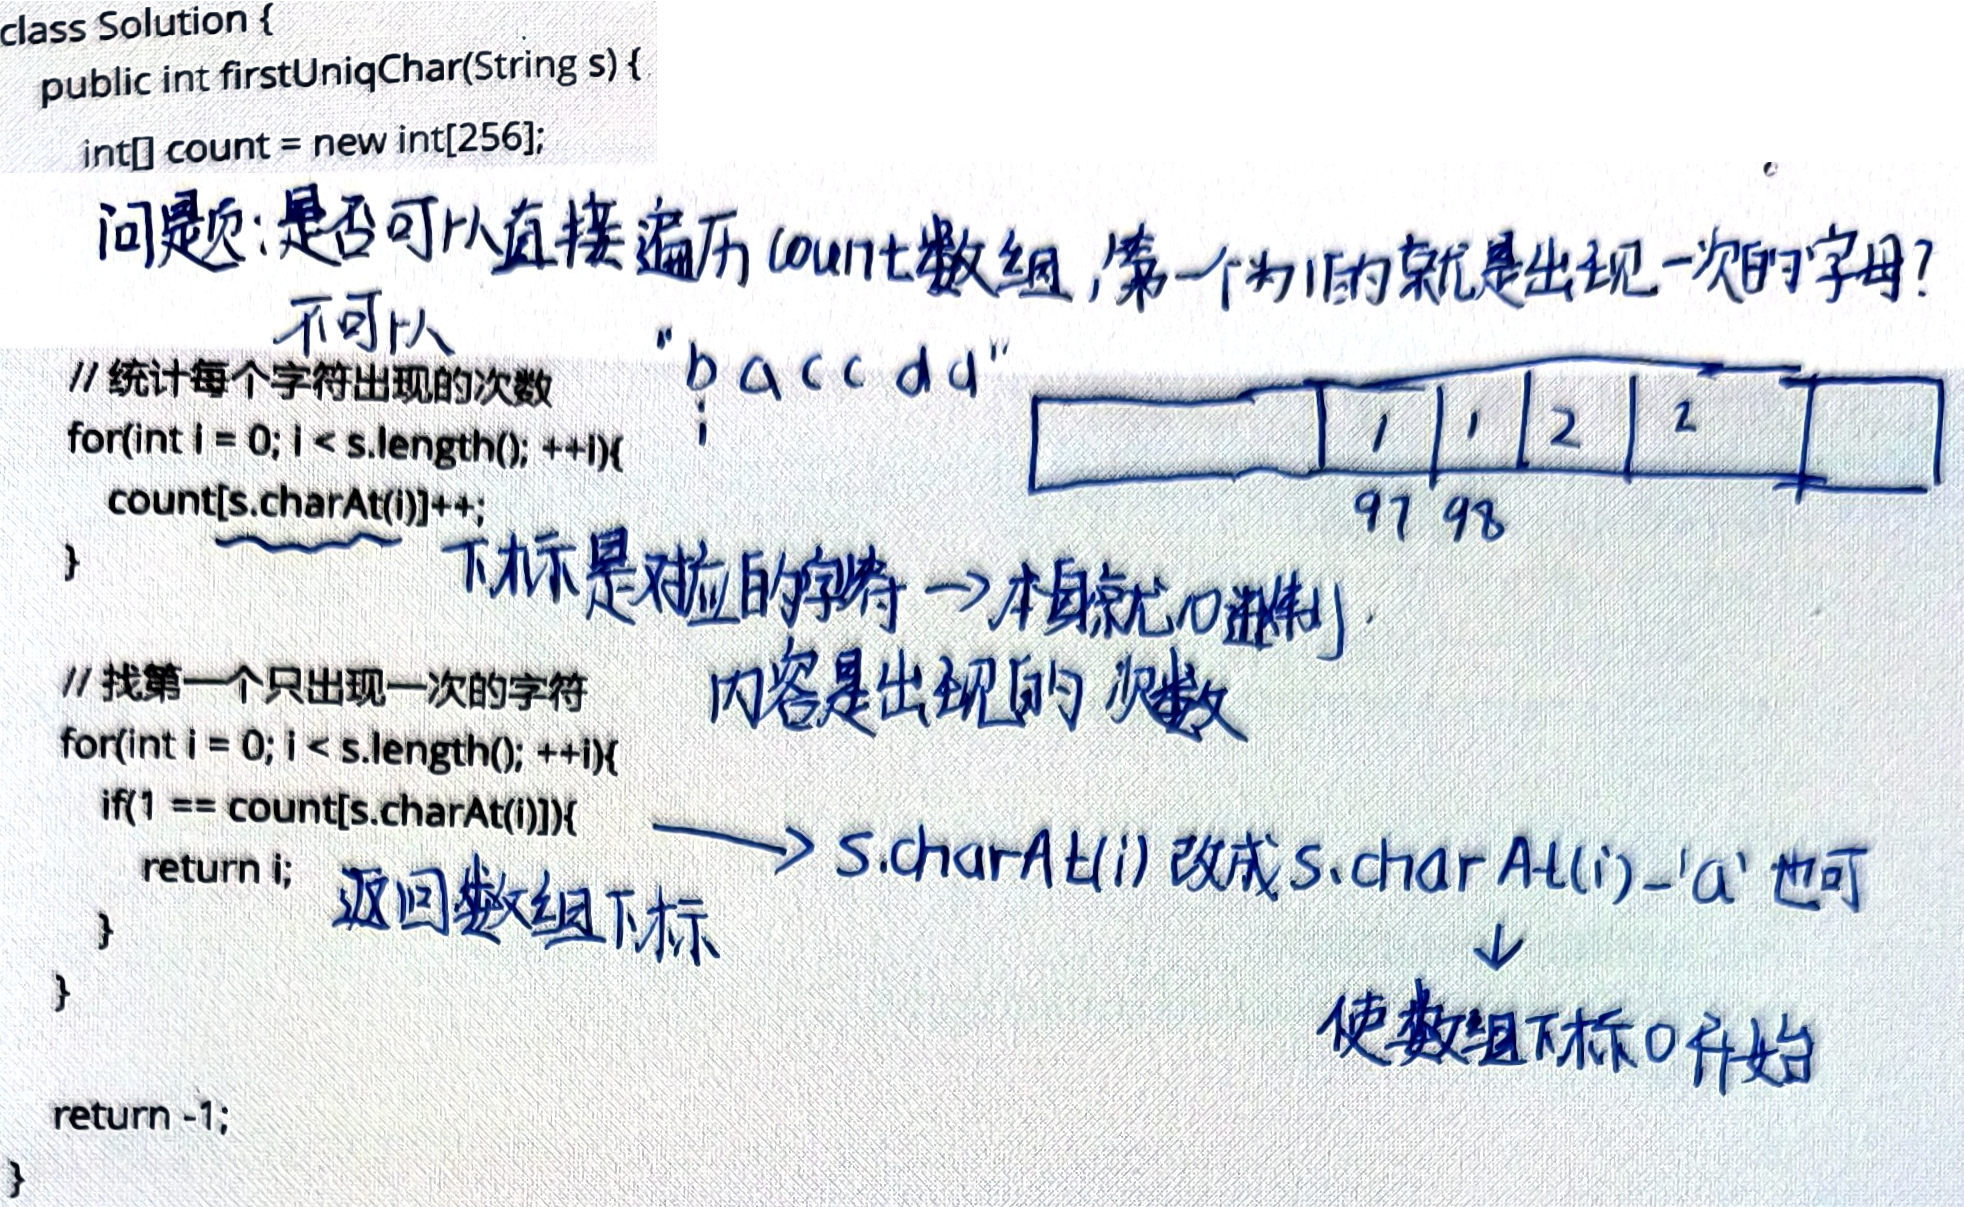 class Solution {
public int firstUniqChar(String s) {
int[] count = new int[256];
问题:是否可以直接遍历count数组,第一个为1的就是出现一次的字母?
不可以
"baccdd"
i
// 统计每个字符出现的次数
for(int i = 0; i < s.length(); ++i){
1 1 2 2
97 98
count[s.charAt(i)]++;
}
下标是对应的字符→本身就10进制.
内容是出现的次数
// 找第一个只出现一次的字符
for(int i = 0; i < s.length(); ++i){
if(1 == count[s.charAt(i)]){
→ s.charAt(i)改成s.charAt(i)-'a'也可
return i;
返回数组下标
↓
使数组下标0开始
}
}
return -1;
}